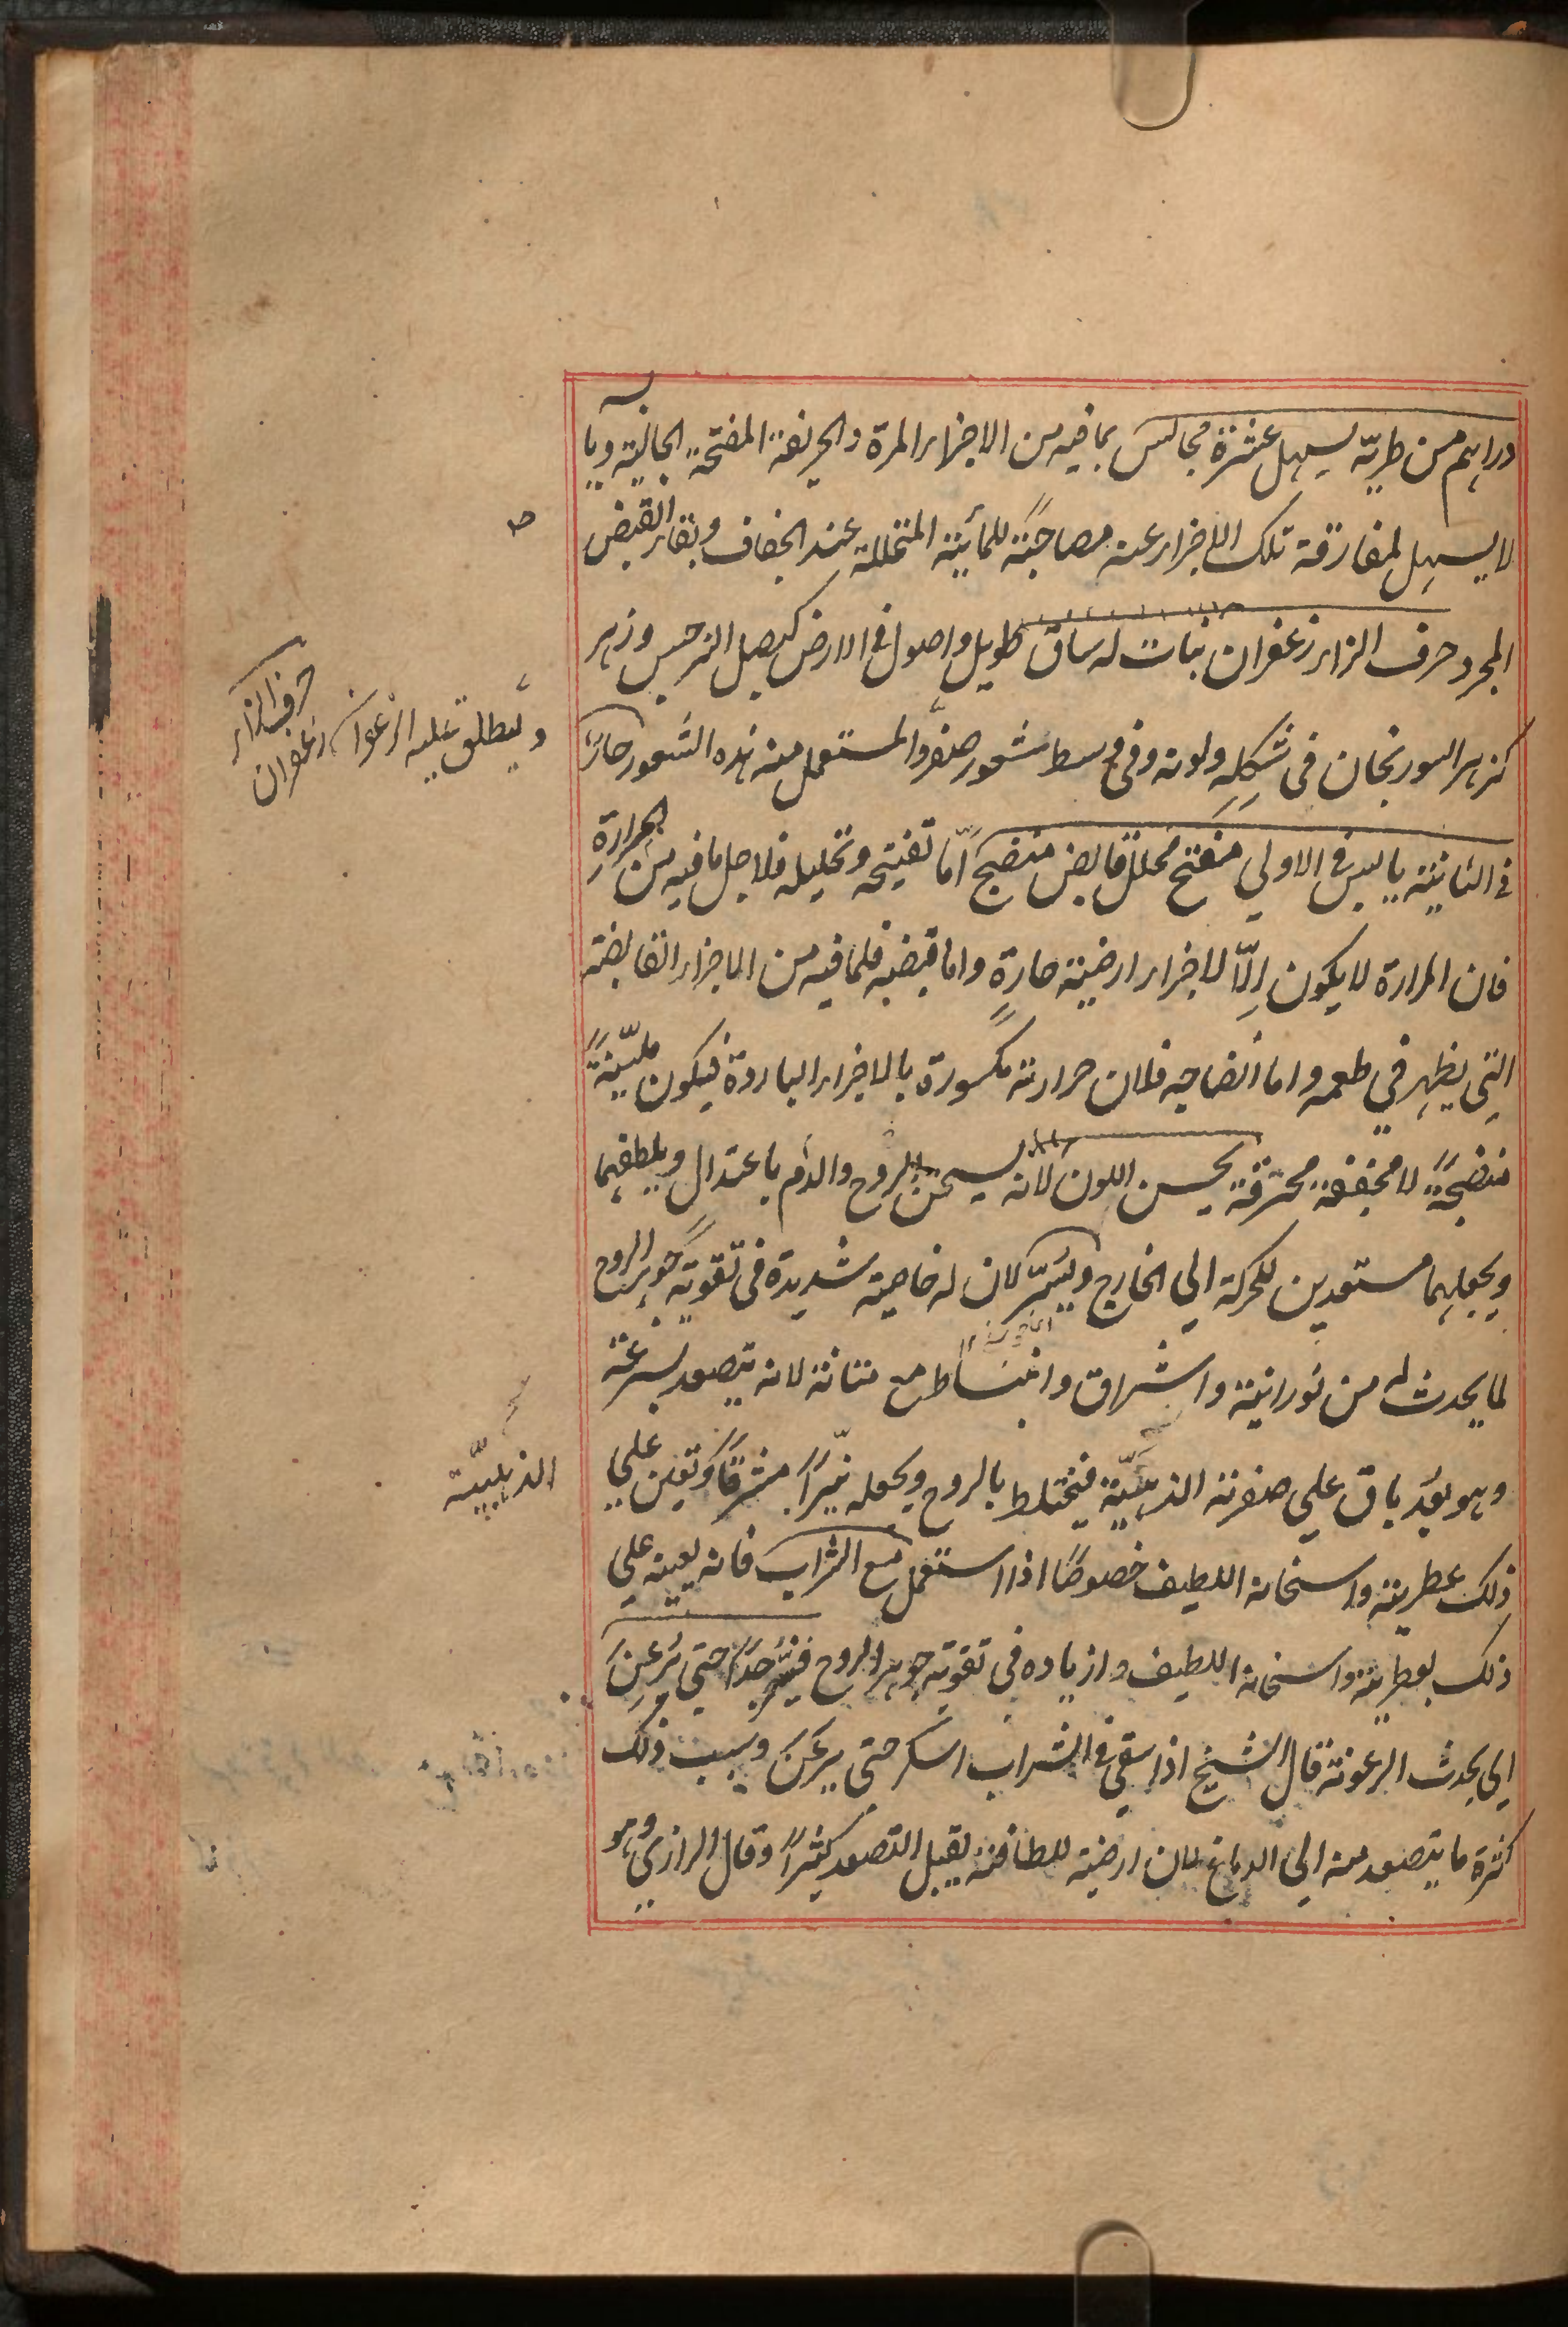 دراهم من طريّه يسهل عشرة مجالس بما فيه من الاجزاء المرة والحريفة المفتحة الجالية ويابسه
لا يسهل لمفارقة تلك الاجزاء عنه مصاحبةً للمائية المتحللة عند الجفاف وبقاء القبض
المجرد حرف الزاء زعفران نبات له ساق طويل واصول في الارض كبصل النرجس وزهر
كزهر السورنجان في شكله ولونه وفي وسطه شعور صفر والمستعمل منه هذه الشعور حار
في الثانية يابس في الاولي مفتح محلل قابض منضج امّا تفتيحه وتحليله فلاجل ما فيه من الحرارة
فان المرارة لا يكون الّا لاجزاء ارضية حارةٍ واما قبضه فلما فيه من الاجزاء القابضة
التي يظهر في طعمه واما انضاجه فلان حرارته مكسورة بالاجزاء الباردة فيكون مليّنةً
منضجةً لا مجففة محترقة يحسن اللون لانه يسخن الروح والدم باعتدال ويلطفهما
ويجعلهما مستعدين للحركة الي الخارج ويسرّ لان له خاصية شديدة في تقوية جوهر الروح
لما يحدث له من نورانية واشراق وانبساط مع متانة لانه يتصعد بسرعة
وهو بعد باق علي صفرته الذهبيّة فيختلط بالروح ويجعله نيّراً مشرقاً ويعين علي
ذلك عطريته واسخانه اللطيف خصوصًا اذا استعمل مع الشراب فانه يعينه علي
ذلك بعطريته واسخانه اللطيف وازياده في تقوية جوهر الروح فيسرّ جدًا حتي يرعن
اي يحدث الرعونة قال الشيخ اذا سقي في الشراب اسكر حتي يرعن وسبب ذلك
كثرة ما يتصعد منه الي الدماغ لان ارضيته للطافته يقبل التصعد كثيراً وقال الرازي وهو
حرف الزاء
زعفران
ويطلق عليه الزعفران
الذهبيّة